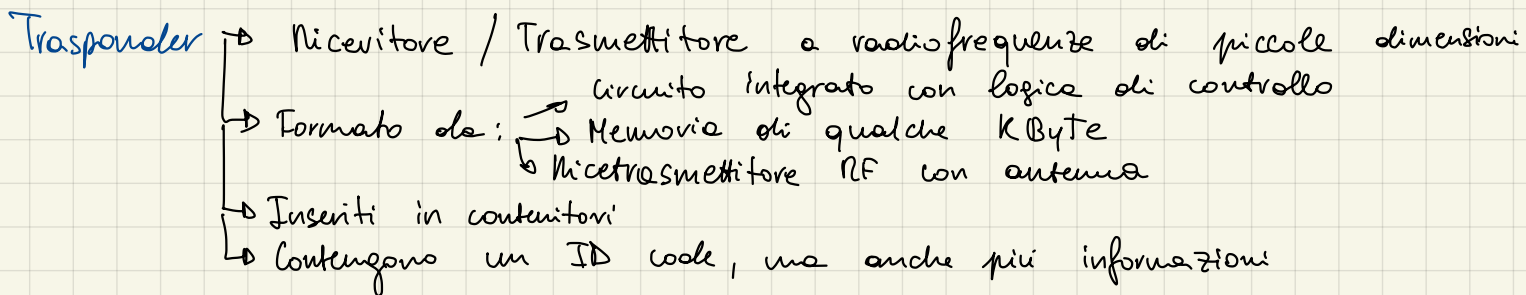 Trasponder → Ricevitore / Trasmettitore a radiofrequenze di piccole dimensioni
→ Formato da: → circuito integrato con logica di controllo
→ Memoria di qualche KByte
→ Ricetrasmettitore RF con antenna
→ Inseriti in contenitori
→ Contengono un ID code, ma anche più informazioni